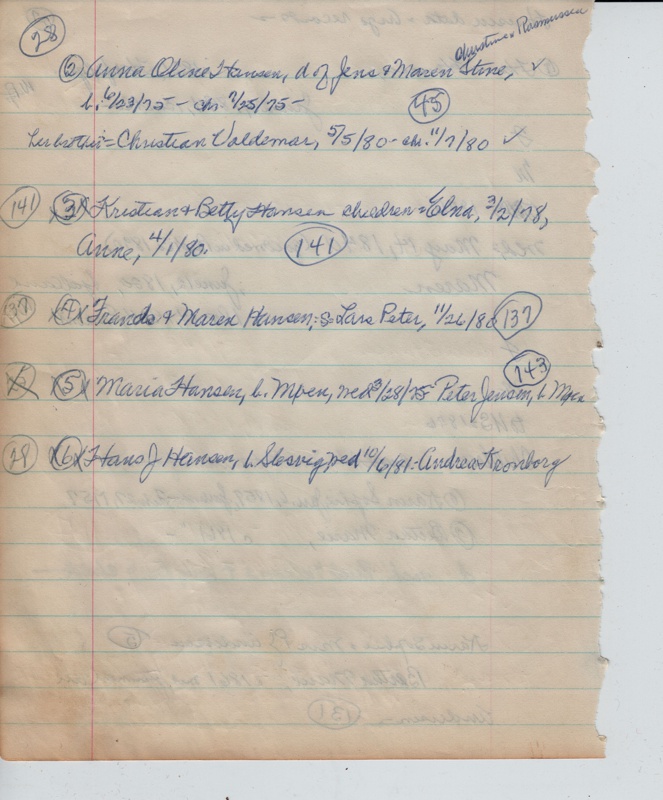 28
Christine Rasmussen
② Anna Oline Hansen, d of Jens & Maren Stine, ✓
b. 6/23/75 - chr. 7/25/75 - 45
her brother = Christian Valdemar, 5/5/80 - chr. 11/7/80 ✓
141 X3X Kristian & Betty Hansen children = Elna, 3/2/78,
Anne, 4/1/80. 141
137 X4X Frands & Maren Hansen, s = Lars Peter, 11/26/80 137
143
5 X5X Maria Hansen, b. Mpen, wed 3/28/75 Peter Jensen, b. Mpen
29 X6X Hans J Hansen, b. Slesvig, wed 10/6/81 - Andrea Kronborg